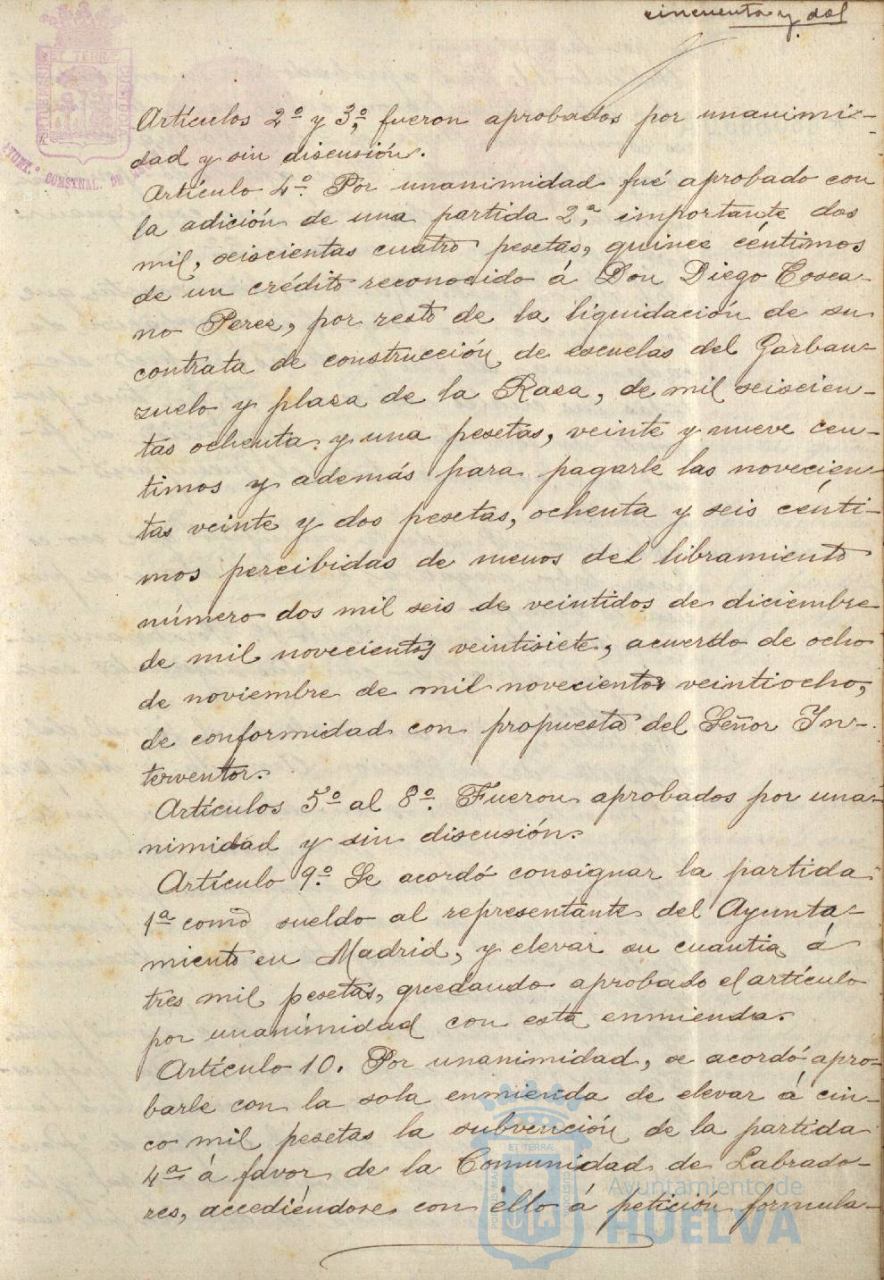 cincuenta y dos
Artículos 2º y 3º, fueron aprobados por unanimi-
dad y sin discusión.
Artículo 4º. Por unanimidad fué aprobado con
la adición de una partida 2ª, importante dos
mil, seiscientas cuatro pesetas, quince céntimos
de un crédito reconocido á Don Diego Tosca-
no Perez, por resto de la liquidación de su
contrata de construcción de escuelas del Garban-
zuelo y plaza de la Rasa, de mil seiscien-
tas ochenta y una pesetas, veinte y nueve cen-
timos y además para pagarle las novecien-
tas veinte y dos pesetas, ochenta y seis cénti-
mos percibidas de menos del libramiento
número dos mil seis de veintidos de diciembre
de mil novecientos veintisiete, acuerdo de ocho
de noviembre de mil novecientos veintiocho,
de conformidad con propuesta del Señor In-
terventor.
Artículos 5º al 8º. Fueron aprobados por una-
nimidad y sin discusión.
Artículo 9º. Se acordó consignar la partida
1ª como sueldo al representante del Ayunta-
miento en Madrid, y elevar su cuantia á
tres mil pesetas, quedando aprobado el artículo
por unanimidad con esta enmienda.
Artículo 10. Por unanimidad, se acordó apro-
barle con la sola enmienda de elevar á cin-
co mil pesetas la subvención de la partida
4ª á favor de la Comunidad de Labrado-
res, accediéndose con ello á petición formula-
Ayuntamiento de
HUELVA